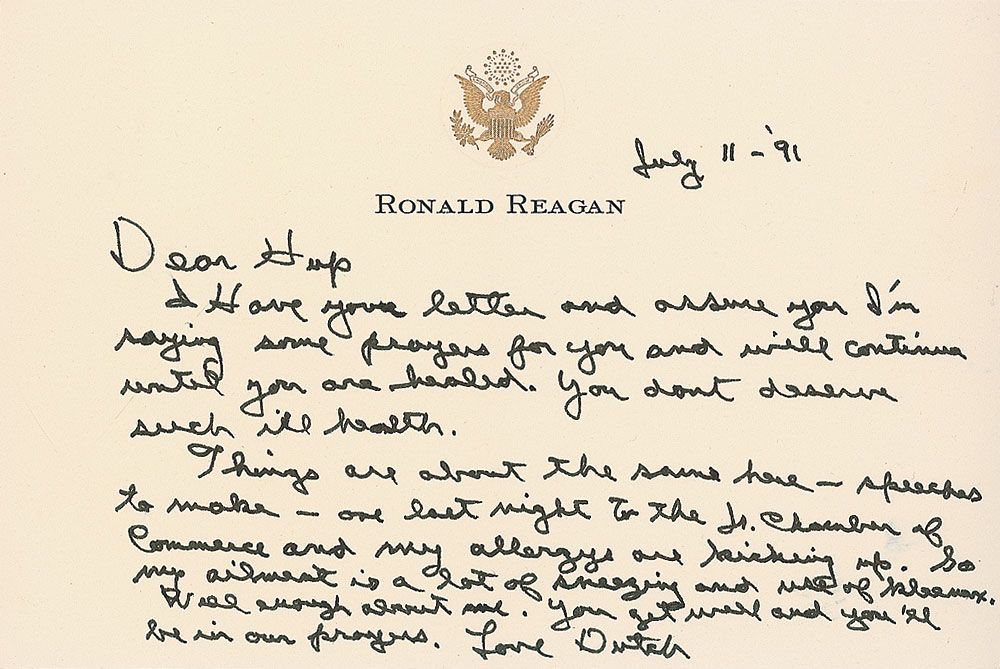 July 11 - '91
RONALD REAGAN
Dear Hup
I Have your letter and assure you I'm
saying some prayers for you and will continue
until you are healed. You dont deserve
such ill health.
Things are about the same here - speeches
to make - one last night to the Jr. Chamber of
Commerce and my allergys are kicking up. So
my ailment is a lot of sneezing and use of kleenex.
Well enough about me. You get well and you'll
be in our prayers. Love Dutch